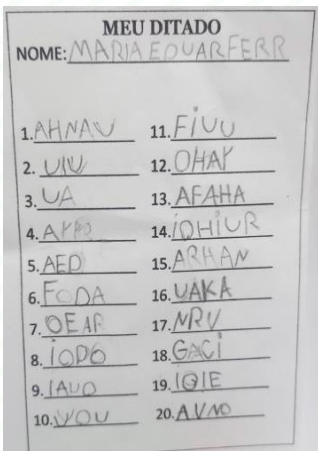 MEU DITADO
NOME: MARIA EDUARFERR
1. AHNAU
2. UIU
3. UA
4.
5. AED
6. FODA
7. OEAF
8. IODO
9. IAUO
10. VOU
11. FIUU
12. OHAY
13. AFAHA
14. IOHIUR
15. ARHAN
16. UAKA
17. NRU
18. GACI
19. IOIE
20. AVNO